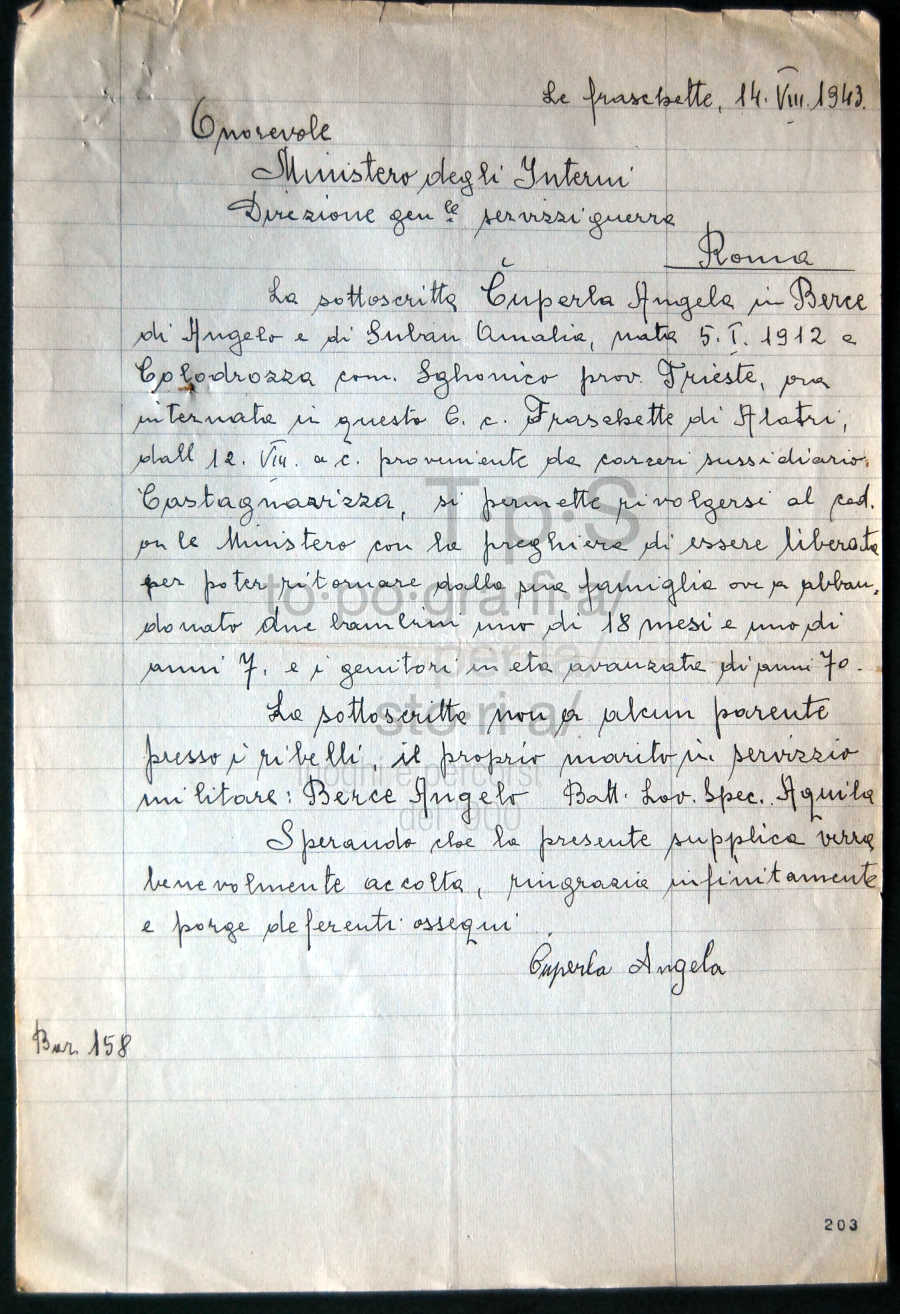 Le fraschette, 14. VIII. 1943.
Onorevole
Ministero degli Interni
Direzione gen.le servizzi guerra
Roma
La sottoscritta Čuperla Angela in Berce
di Angelo e di Suban Amalia, nata 5. I. 1912 a
Colodrozza com. Sghonico prov. Trieste, ora
internata in questo C. c. Fraschette di Alatri,
dall 12. VIII. a c. proveniente da carceri sussidiario.
Castagnavizza, si permette rivolgersi al cod.
on le Ministero con la preghiera di essere liberata
per poter ritornare dalla sua famiglia ove a abban,
donato due bambini uno di 18 mesi e uno di
anni 7, e i genitori in eta avanzata di anni 70.
La sottoscritta non a alcun parente
presso i ribelli, il proprio marito in servizzio
militare: Berce Angelo Batt. Lav. Spec. Aquila
Sperando che la presente supplica verra
benevolmente accolta, ringrazia infinitamente
e porge deferenti ossequi
Čuperla Angela
Bar. 158
203
T·p·S
to·po·gra·fi·a/
per·la/
sto·ri·a/
luoghi e percorsi
del 900